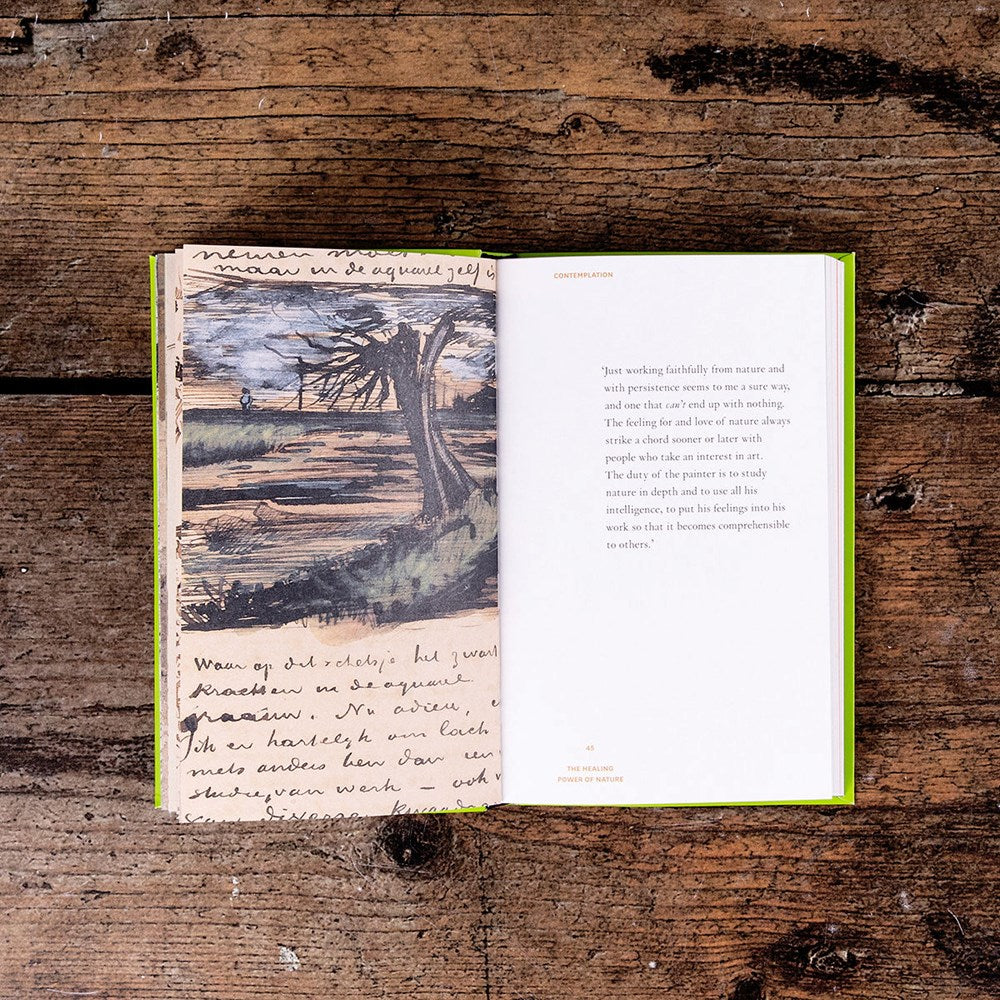 maar in de aquarel zelf is
Waar op dit schetsje het zwart
krachten in de aquarel
Nu adieu,
ik er hartelijk om lach
mets anders ben dan een
studie van werk — ook
CONTEMPLATION
‘Just working faithfully from nature and
with persistence seems to me a sure way,
and one that can’t end up with nothing.
The feeling for and love of nature always
strike a chord sooner or later with
people who take an interest in art.
The duty of the painter is to study
nature in depth and to use all his
intelligence, to put his feelings into his
work so that it becomes comprehensible
to others.’
45
THE HEALING
POWER OF NATURE